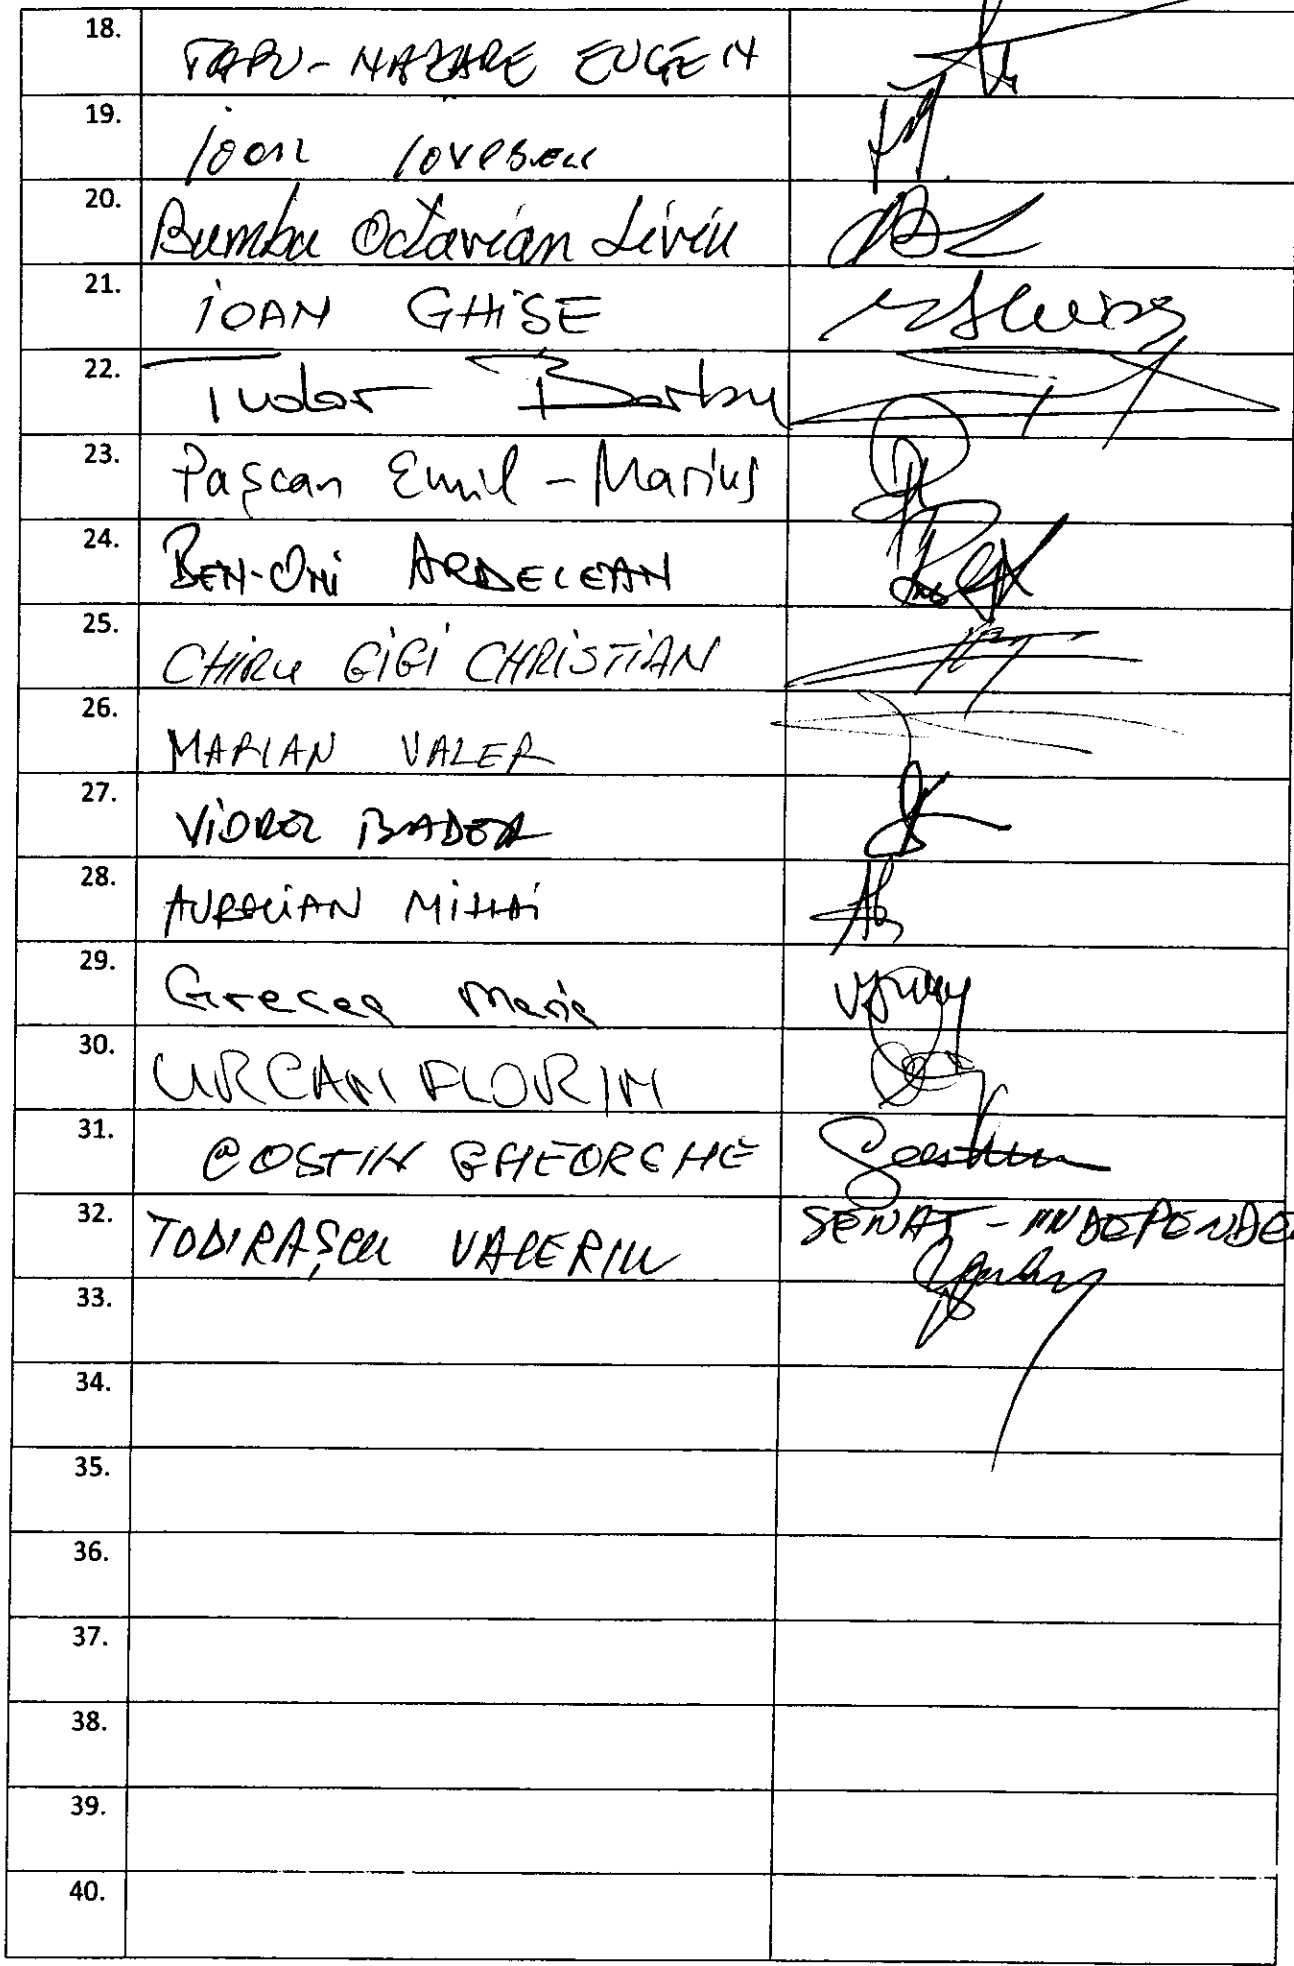 18. ȚAPU-NAZARE EUGEN
19. ioan iovescu
20. Bumbu Octavian Liviu
21. iOAN GHiSE
22. Tudor Barbu
23. Pașcan Emil - Marius
24. BEN-ONi ARDELEAN
25. CHIRU GiGi CHRiSTiAN
26. MARIAN VALER
27. ViOREL BADEA
28. AURELIAN MiHAi
29. Grecea Maria
30. URCAN FLORIN
31. COSTIN GHEORGHE
32. TODIRAȘCU VALERIU SENAT - INDEPENDE
33.
34.
35.
36.
37.
38.
39.
40.